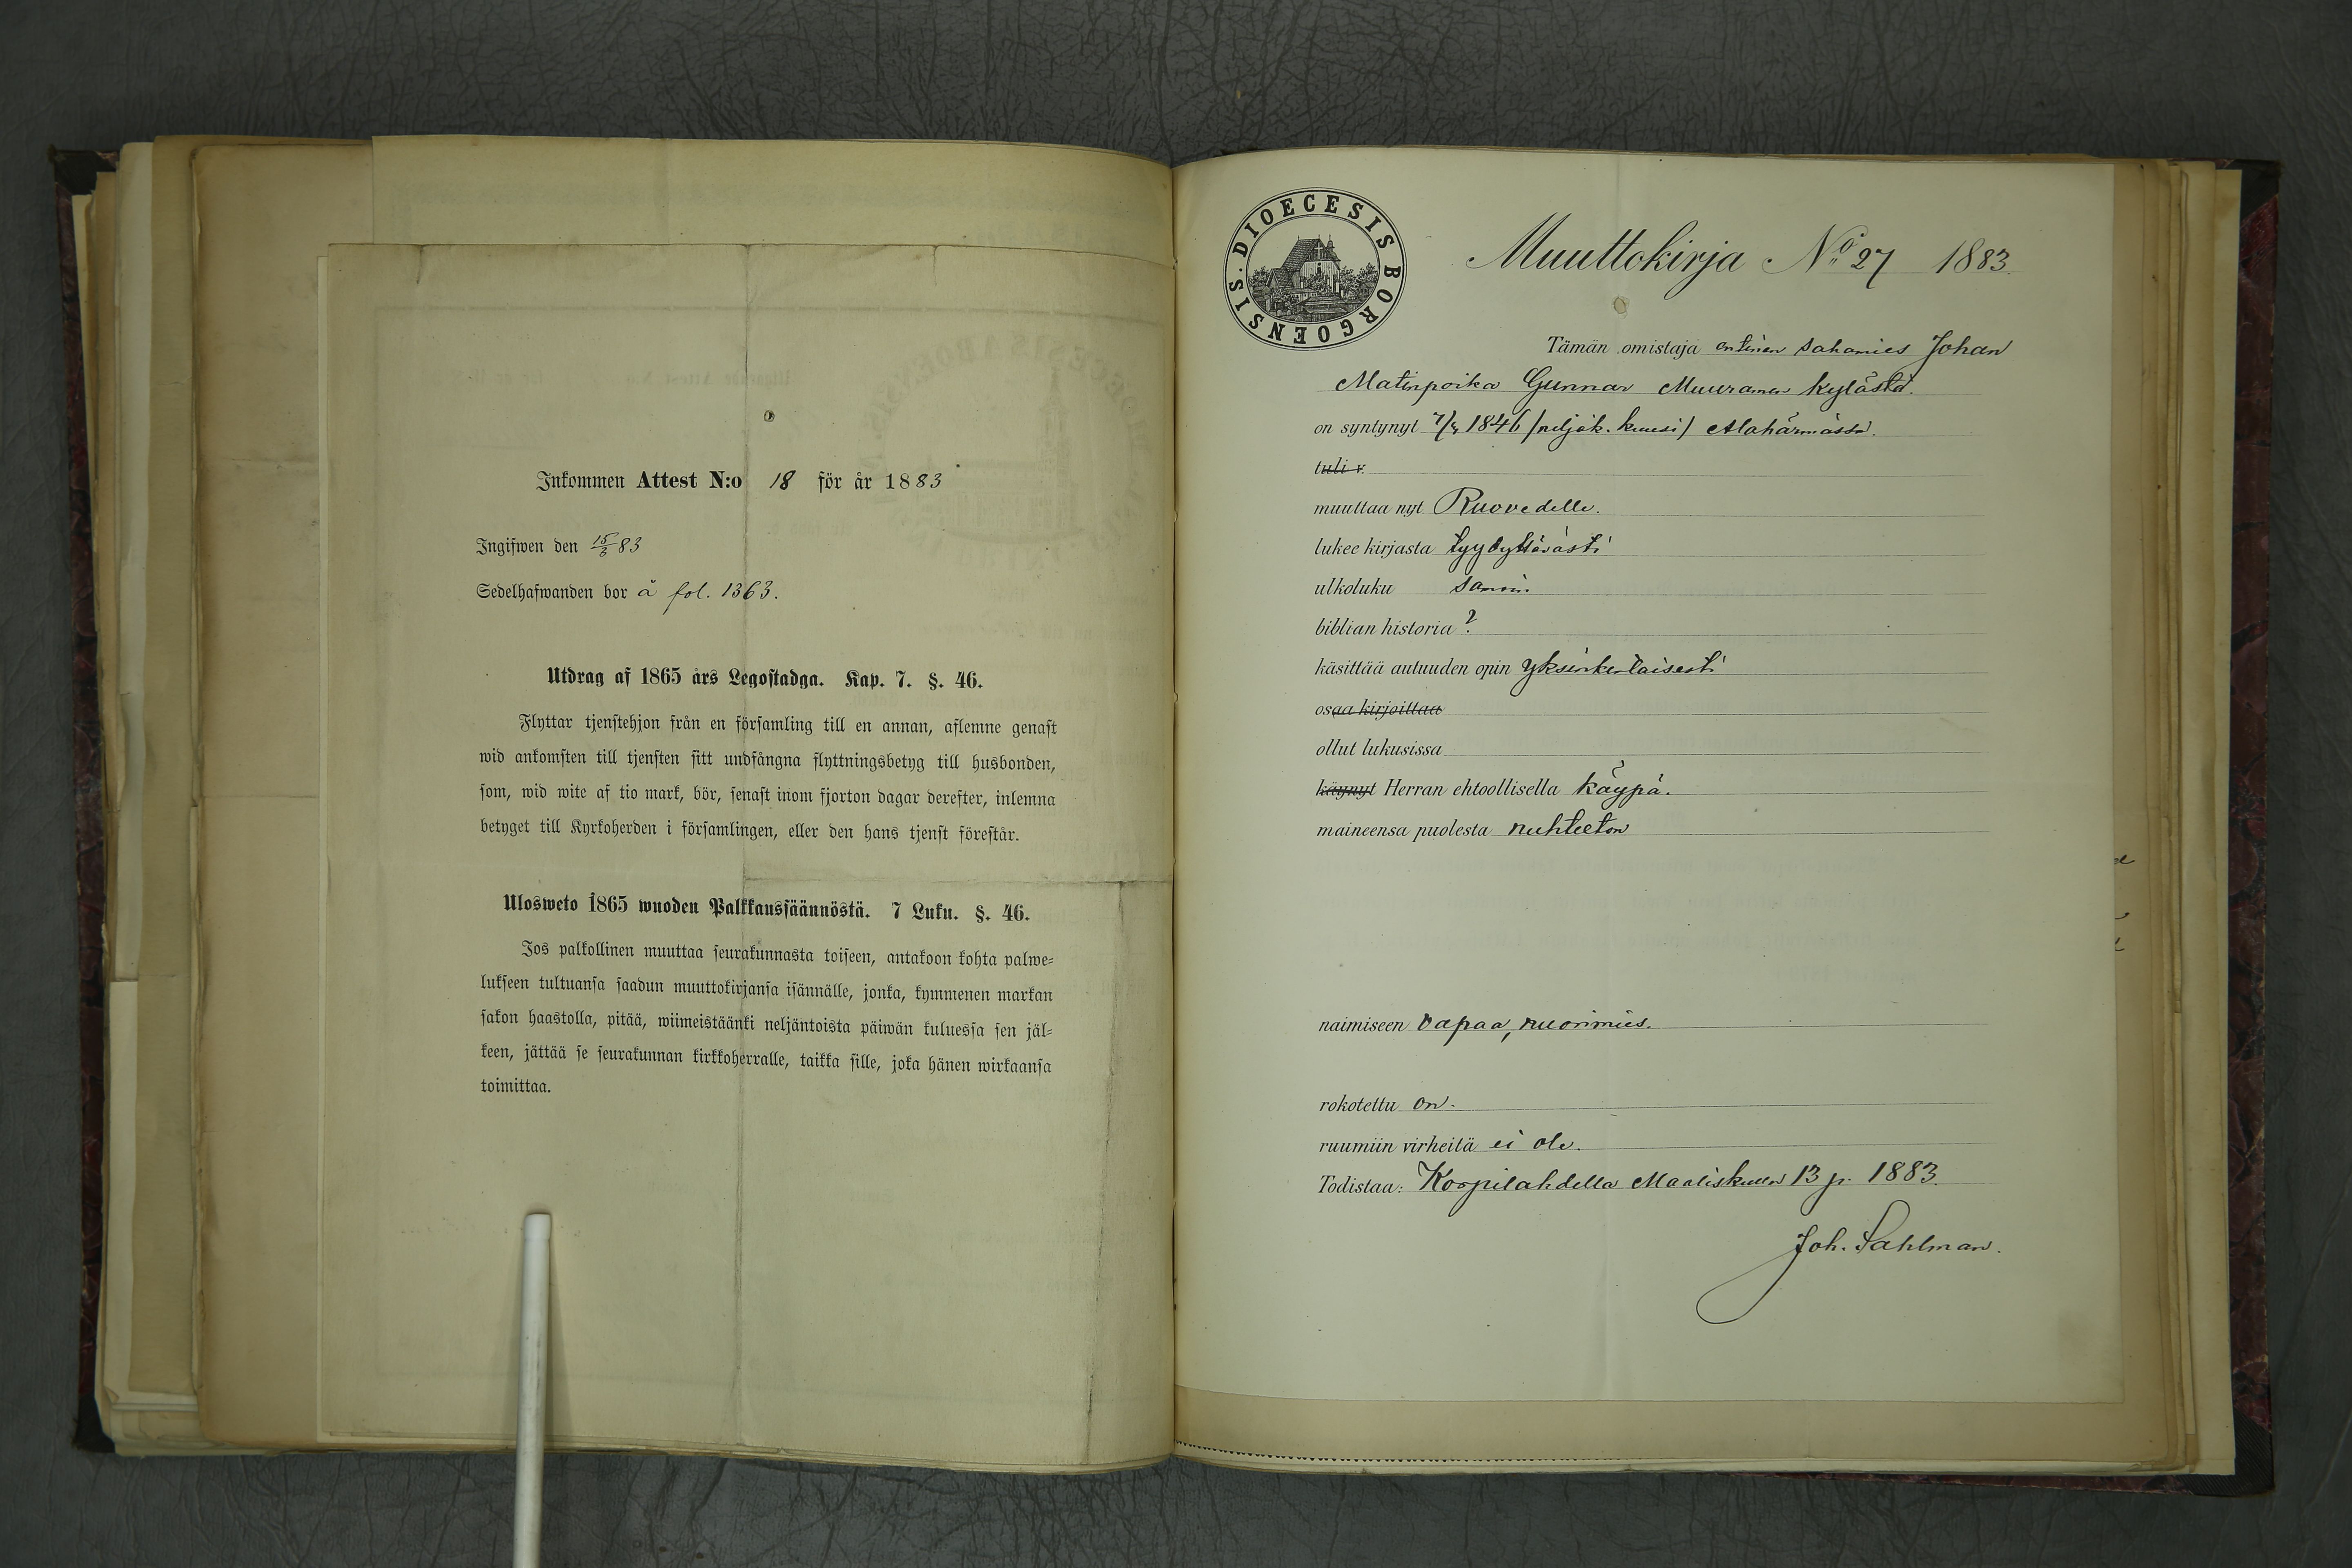 Inkommen Attest N:o 18 för år 1883
Ingifwen den 15/6 83
Sedelhafwanden bor å fol. 1363.
Utdrag af 1865 års Legostadga. Kap. 7. §. 46.
Flyttar tjenstehjon från en församling till en annan, aflemne genast
wid ankomsten till tjensten sitt undfångna flyttningsbetyg till husbonden,
som, wid wite af tio mark, bör, senast inom fjorton dagar derefter, inlemna
betyget till Kyrkoherden i församlingen, eller den hans tjenst förestår.
Ulosweto 1865 wuoden Palkkaussäännöstä. 7 Luku. §. 46.
Jos palkollinen muuttaa seurakunnasta toiseen, antakoon kohta palwe-
lukseen tultuansa saadun muuttokirjansa isännälle, jonka, kymmenen markan
sakon haastolla, pitää, wiimeistäänki neljäntoista päiwän kuluessa sen jäl-
keen, jättää se seurakunnan kirkkoherralle, taikka sille, joka hänen wirkaansa
toimittaa.
DIOECESIS BORGOENSIS.
Muuttokirja No 27 1883.
Tämän omistaja entinen sahamies Johan
Matinpoika Gunnar Muuramen kylästä.
on syntynyt 7/4 1846 /neljäk. kuusi/ Alahärmässä.
tuli v.
muuttaa nyt Ruovedelle.
lukee kirjasta tyydyttävästi
ulkoluku samoin
biblian historia ?
käsittää autuuden opin yksinkertaisesti
osaa kirjoittaa
ollut lukusissa
käynyt Herran ehtoollisella käypä.
maineensa puolesta nuhteeton
naimiseen vapaa, nuorimies.
rokotettu on.
ruumiin virheitä ei ole.
Todistaa: Korpilahdella Maaliskuun 13 p. 1883.
Joh. Sahlman.